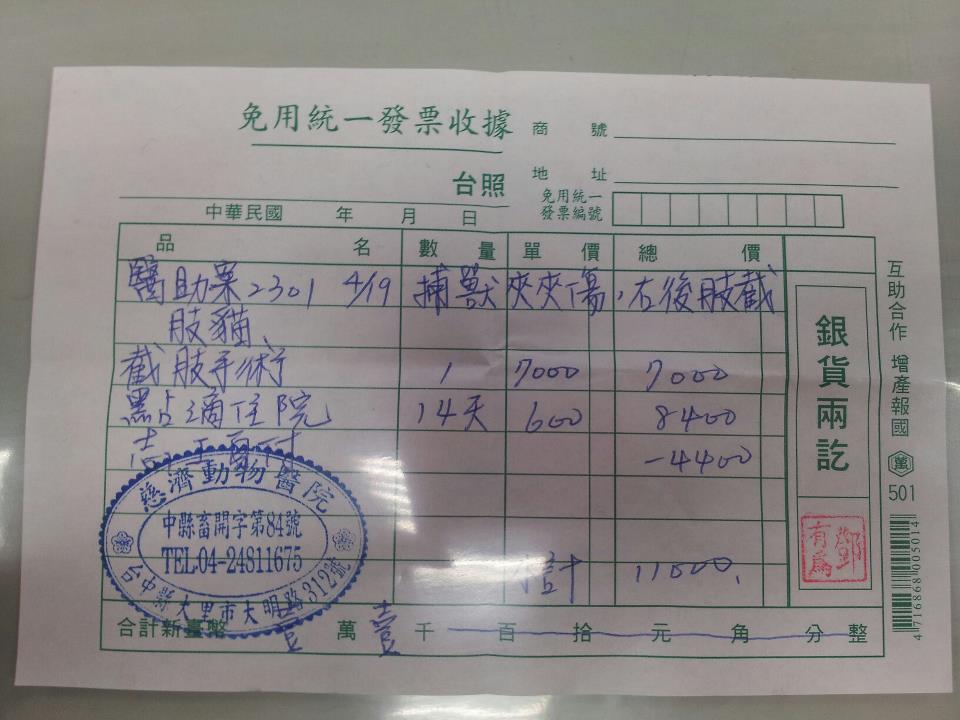 免用統一發票收據 商號
台照 地址
免用統一
發票編號
中華民國 年 月 日
品名 數量 單價 總價
醫助案2301 4/19 捕獸夾夾傷,右後肢截
肢貓、
截肢手術 1 7000 7000
點滴住院 14天 600 8400
志工 -4400
慈濟動物醫院
中縣畜開字第84號
TEL.04-24811675
台中縣大里市大明路312號
總計 11000.
合計新臺幣 壹萬 壹千 百 拾 元 角 分 整
銀貨兩訖
鄧有為
互助合作 增產報國 萬 501
4716868005014